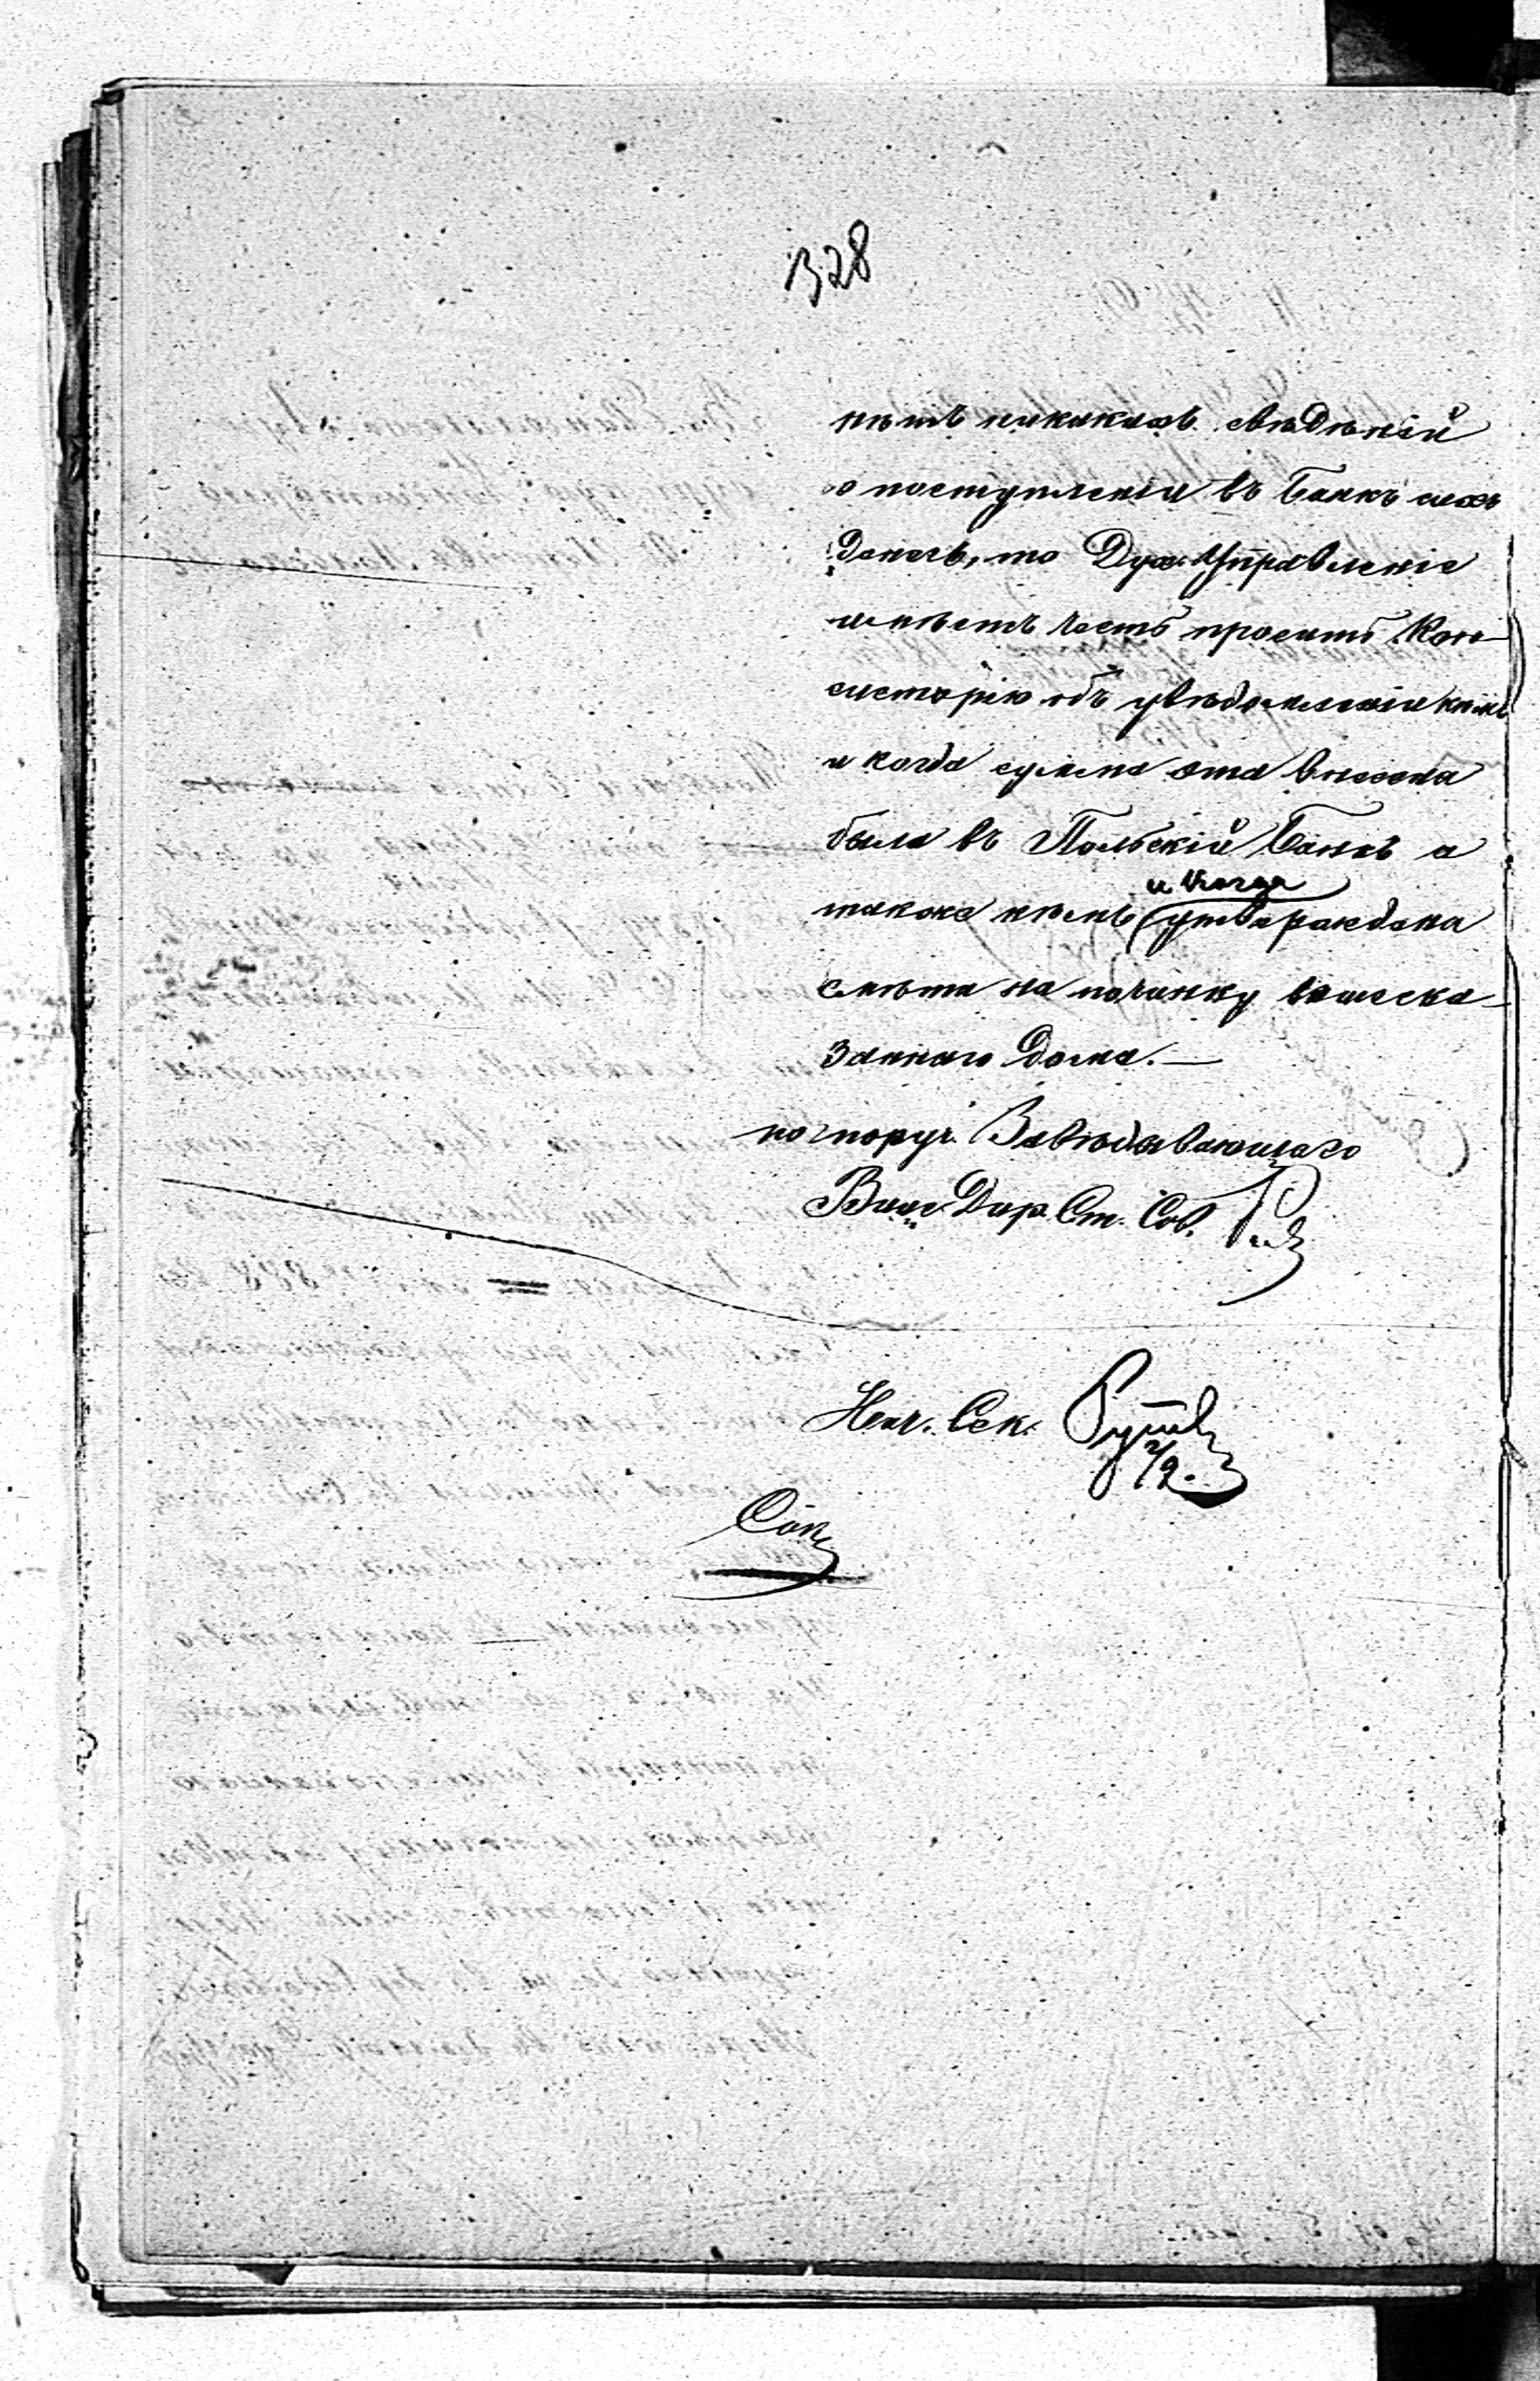 328
нѣтъ никакихъ свѣдѣній
о поступленіи въ Банкъ сихъ
денегъ, то Дух. Управленіе
имѣетъ честь просить Кон-
систорію объ увѣдомленіи кѣмъ
и когда сумма эта внесена
была въ Польскій Банкъ а
и когда
также кѣмъ утверждена
смѣта на починку вышеска-
заннаго дома.—
по поруч. Завѣдывающаго
Вице Дир. Ст. Сов.
Нач. Сек.